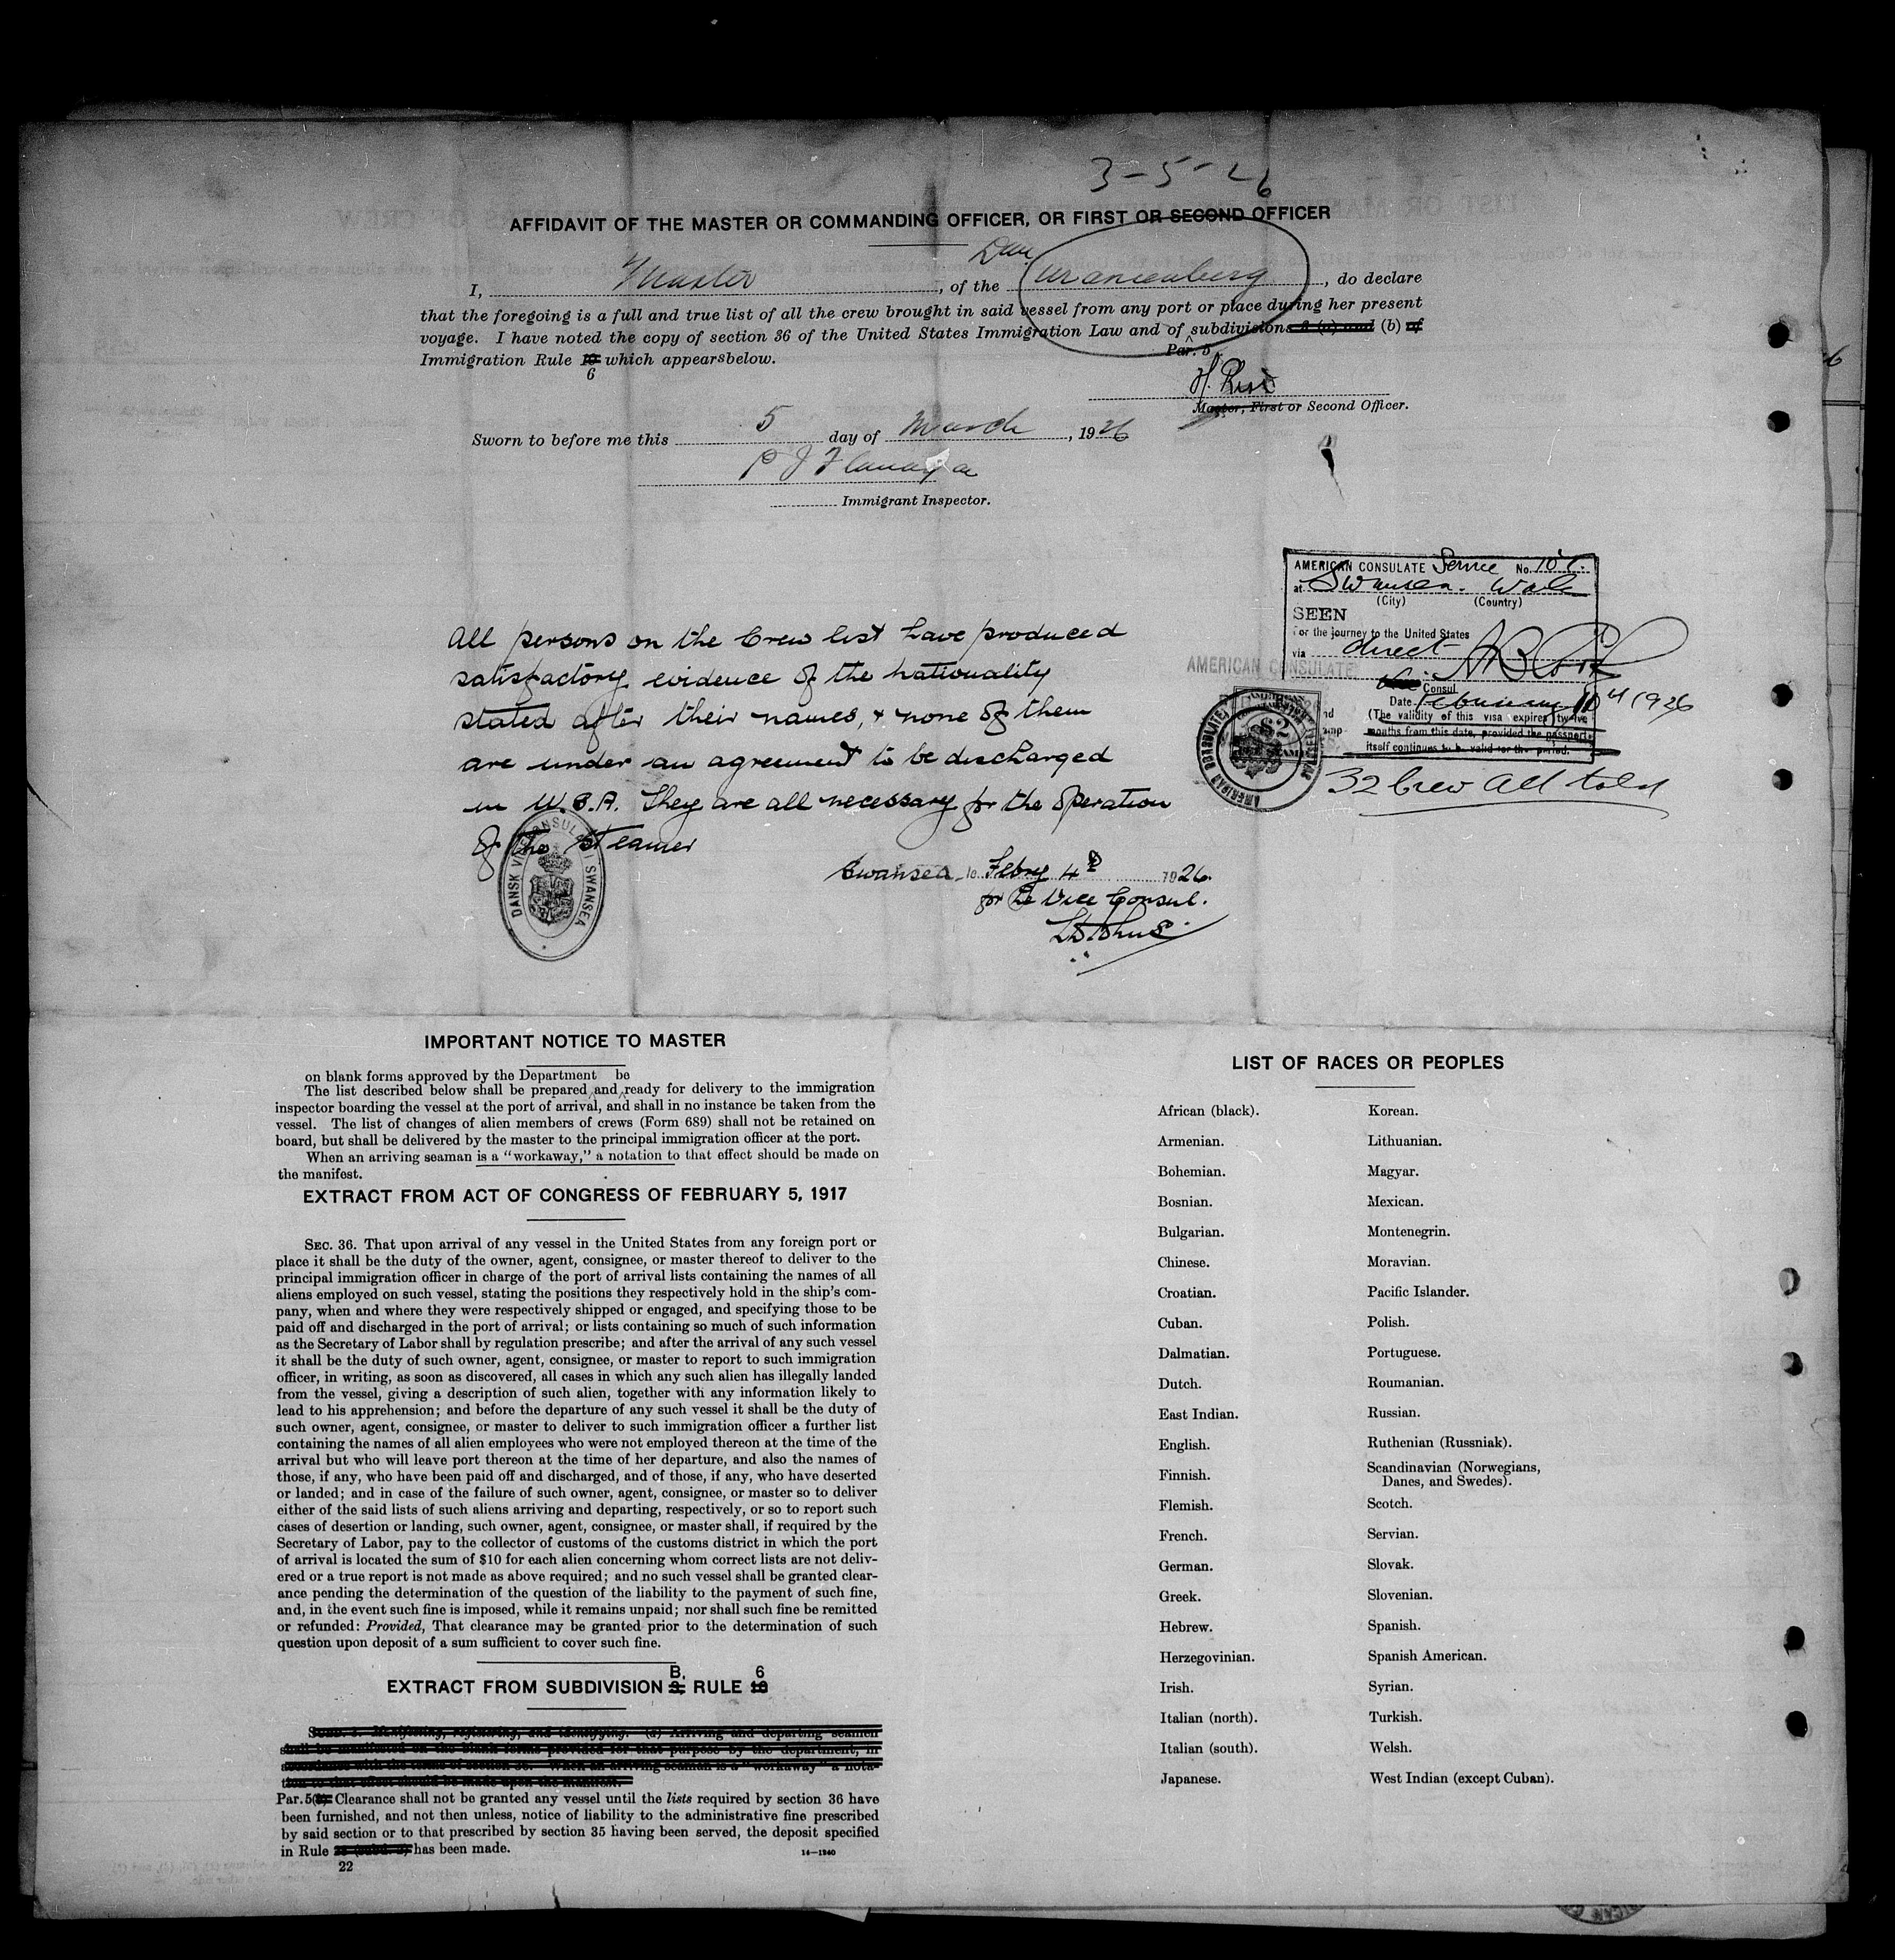 3-5-26
AFFIDAVIT OF THE MASTER OR COMMANDING OFFICER, OR FIRST OR SECOND OFFICER
Dan.
I, Master, of the Uranienborg, do declare
that the foregoing is a full and true list of all the crew brought in said vessel from any port or place during her present
voyage. I have noted the copy of section 36 of the United States Immigration Law and of subdivisions (b) of
Par. 5
Immigration Rule 10 which appears below.
6
Master, First or Second Officer.
Sworn to before me this 5 day of March, 1926
P J Flanagan
Immigrant Inspector.
AMERICAN CONSULATE Service No. 107.
at Swansea. Wales
(City) (Country)
SEEN
For the journey to the United States
via direct
AMERICAN CONSULATE
Consul
Date February 10th 1926
(The validity of this visa expires twelve
months from this date, provided the passport
itself continues to be valid for the period.
32 Crew all told
All persons on the Crew list have produced
satisfactory evidence of the nationality
stated after their names, & none of them
are under an agreement to be discharged
in U.S.A. They are all necessary for the operation
of the Steamer
DANSK VICEKONSULAT I SWANSEA
Swansea Febry 4th 1926.
for the Vice Consul.
IMPORTANT NOTICE TO MASTER
on blank forms approved by the Department be
The list described below shall be prepared and ready for delivery to the immigration
inspector boarding the vessel at the port of arrival, and shall in no instance be taken from the
vessel. The list of changes of alien members of crews (Form 689) shall not be retained on
board, but shall be delivered by the master to the principal immigration officer at the port.
When an arriving seaman is a "workaway," a notation to that effect should be made on
the manifest.
EXTRACT FROM ACT OF CONGRESS OF FEBRUARY 5, 1917
SEC. 36. That upon arrival of any vessel in the United States from any foreign port or
place it shall be the duty of the owner, agent, consignee, or master thereof to deliver to the
principal immigration officer in charge of the port of arrival lists containing the names of all
aliens employed on such vessel, stating the positions they respectively hold in the ship's com-
pany, when and where they were respectively shipped or engaged, and specifying those to be
paid off and discharged in the port of arrival; or lists containing so much of such information
as the Secretary of Labor shall by regulation prescribe; and after the arrival of any such vessel
it shall be the duty of such owner, agent, consignee, or master to report to such immigration
officer, in writing, as soon as discovered, all cases in which any such alien has illegally landed
from the vessel, giving a description of such alien, together with any information likely to
lead to his apprehension; and before the departure of any such vessel it shall be the duty of
such owner, agent, consignee, or master to deliver to such immigration officer a further list
containing the names of all alien employees who were not employed thereon at the time of the
arrival but who will leave port thereon at the time of her departure, and also the names of
those, if any, who have been paid off and discharged, and of those, if any, who have deserted
or landed; and in case of the failure of such owner, agent, consignee, or master so to deliver
either of the said lists of such aliens arriving and departing, respectively, or so to report such
cases of desertion or landing, such owner, agent, consignee, or master shall, if required by the
Secretary of Labor, pay to the collector of customs of the customs district in which the port
of arrival is located the sum of $10 for each alien concerning whom correct lists are not deliv-
ered or a true report is not made as above required; and no such vessel shall be granted clear-
ance pending the determination of the question of the liability to the payment of such fine,
and, in the event such fine is imposed, while it remains unpaid; nor shall such fine be remitted
or refunded: Provided, That clearance may be granted prior to the determination of such
question upon deposit of a sum sufficient to cover such fine.
B. 6
EXTRACT FROM SUBDIVISION 3, RULE 10
SUBD. 3. Manifesting, registering, and identifying. (a) Arriving and departing seamen
shall be manifested on the blank forms provided for that purpose by the department, in
accordance with the terms of section 36. When an arriving seaman is a "workaway" a nota-
tion to that effect should be made upon the manifest.
Par. 5 Clearance shall not be granted any vessel until the lists required by section 36 have
been furnished, and not then unless, notice of liability to the administrative fine prescribed
by said section or to that prescribed by section 35 having been served, the deposit specified
in Rule has been made.
22
14—1240
LIST OF RACES OR PEOPLES
African (black). Korean.
Armenian. Lithuanian.
Bohemian. Magyar.
Bosnian. Mexican.
Bulgarian. Montenegrin.
Chinese. Moravian.
Croatian. Pacific Islander.
Cuban. Polish.
Dalmatian. Portuguese.
Dutch. Roumanian.
East Indian. Russian.
English. Ruthenian (Russniak).
Finnish. Scandinavian (Norwegians,
Danes, and Swedes).
Flemish. Scotch.
French. Servian.
German. Slovak.
Greek. Slovenian.
Hebrew. Spanish.
Herzegovinian. Spanish American.
Irish. Syrian.
Italian (north). Turkish.
Italian (south). Welsh.
Japanese. West Indian (except Cuban).